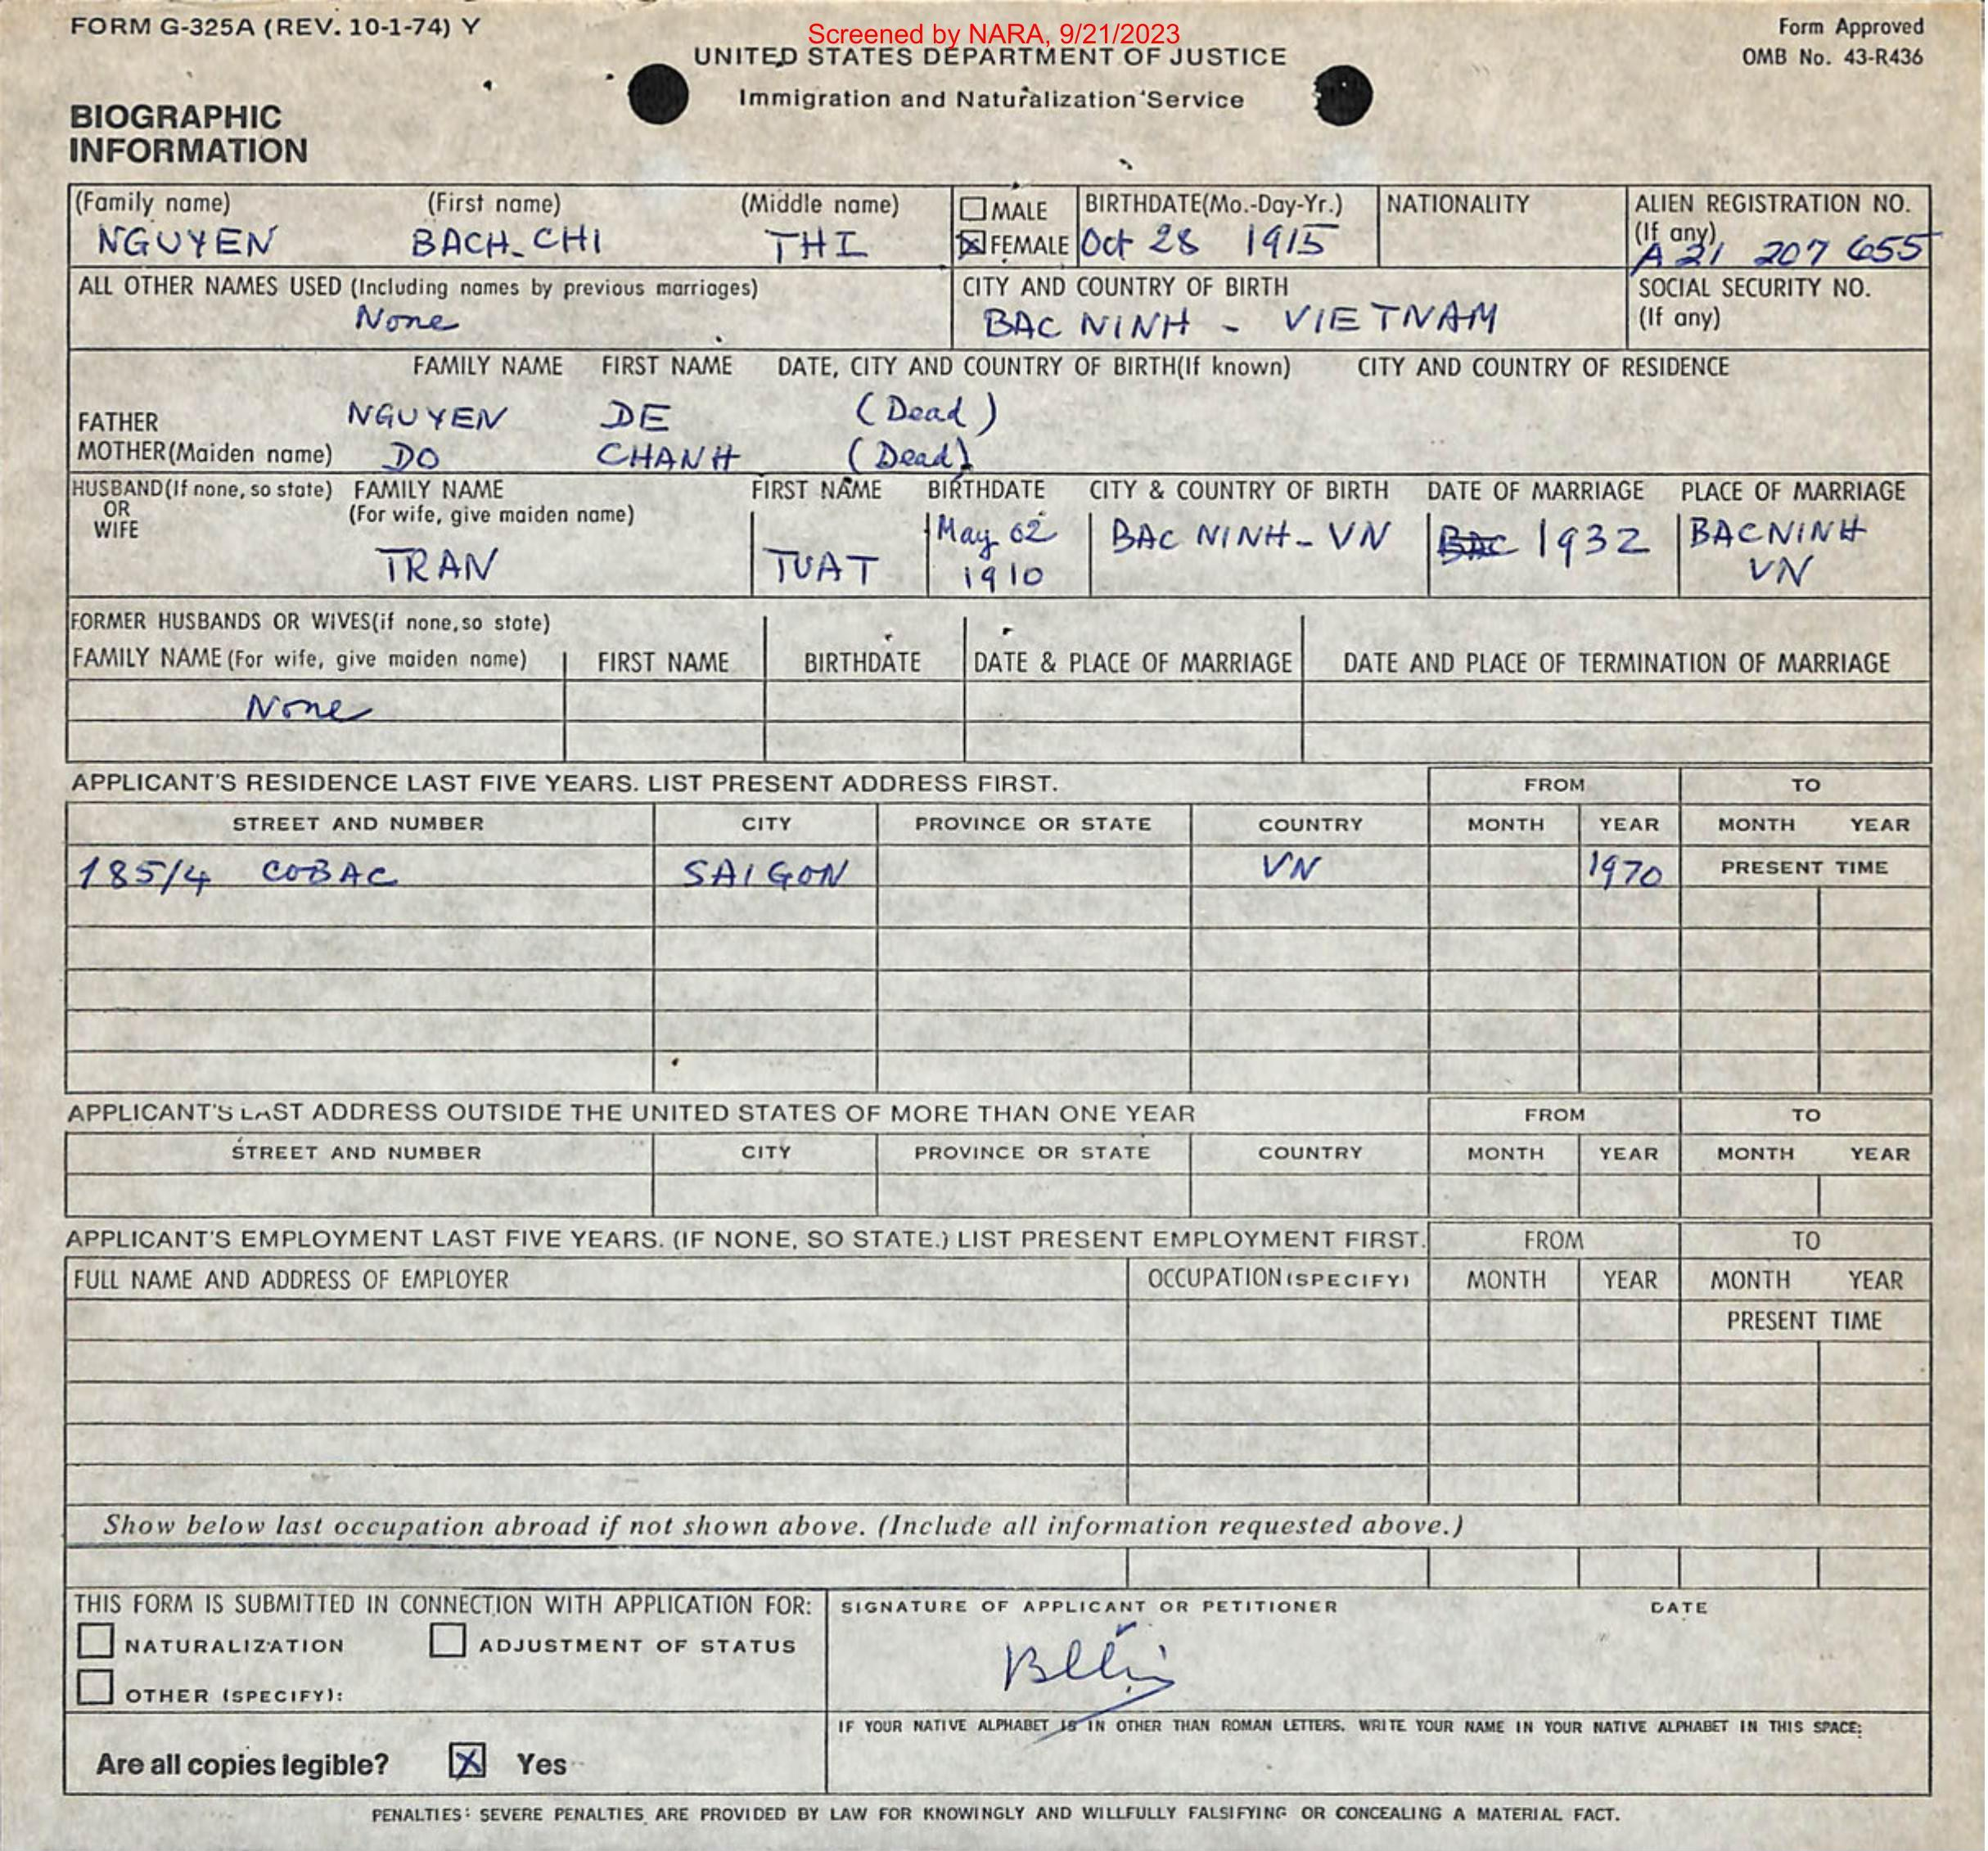 FORM G-325A (REV. 10-1-74) Y
Screened by NARA, 9/21/2023
Form Approved
OMB No. 43-R436
UNITED STATES DEPARTMENT OF JUSTICE
Immigration and Naturalization Service
BIOGRAPHIC
INFORMATION
(Family name) (First name) (Middle name) MALE BIRTHDATE(Mo.-Day-Yr.) NATIONALITY ALIEN REGISTRATION NO.
(If any)
NGUYEN BACH_CHI THI FEMALE Oct 28 1915 A 21 207 655
ALL OTHER NAMES USED (Including names by previous marriages) CITY AND COUNTRY OF BIRTH SOCIAL SECURITY NO.
(If any)
None BAC NINH - VIETNAM
FAMILY NAME FIRST NAME DATE, CITY AND COUNTRY OF BIRTH(If known) CITY AND COUNTRY OF RESIDENCE
FATHER NGUYEN DE (Dead)
MOTHER(Maiden name) DO CHANH (Dead)
HUSBAND(If none, so state) FAMILY NAME FIRST NAME BIRTHDATE CITY & COUNTRY OF BIRTH DATE OF MARRIAGE PLACE OF MARRIAGE
OR (For wife, give maiden name)
WIFE
TRAN TUAT May 02 1910 BAC NINH - VN BAC 1932 BACNINH VN
FORMER HUSBANDS OR WIVES(if none, so state)
FAMILY NAME (For wife, give maiden name) FIRST NAME BIRTHDATE DATE & PLACE OF MARRIAGE DATE AND PLACE OF TERMINATION OF MARRIAGE
None
APPLICANT'S RESIDENCE LAST FIVE YEARS. LIST PRESENT ADDRESS FIRST. FROM TO
STREET AND NUMBER CITY PROVINCE OR STATE COUNTRY MONTH YEAR MONTH YEAR
185/4 COBAC SAIGON VN 1970 PRESENT TIME
APPLICANT'S LAST ADDRESS OUTSIDE THE UNITED STATES OF MORE THAN ONE YEAR FROM TO
STREET AND NUMBER CITY PROVINCE OR STATE COUNTRY MONTH YEAR MONTH YEAR
APPLICANT'S EMPLOYMENT LAST FIVE YEARS. (IF NONE, SO STATE.) LIST PRESENT EMPLOYMENT FIRST. FROM TO
FULL NAME AND ADDRESS OF EMPLOYER OCCUPATION (SPECIFY) MONTH YEAR MONTH YEAR
PRESENT TIME
Show below last occupation abroad if not shown above. (Include all information requested above.)
THIS FORM IS SUBMITTED IN CONNECTION WITH APPLICATION FOR: SIGNATURE OF APPLICANT OR PETITIONER DATE
NATURALIZATION ADJUSTMENT OF STATUS
OTHER (SPECIFY):
IF YOUR NATIVE ALPHABET IS IN OTHER THAN ROMAN LETTERS, WRITE YOUR NAME IN YOUR NATIVE ALPHABET IN THIS SPACE:
Are all copies legible? X Yes
PENALTIES: SEVERE PENALTIES ARE PROVIDED BY LAW FOR KNOWINGLY AND WILLFULLY FALSIFYING OR CONCEALING A MATERIAL FACT.